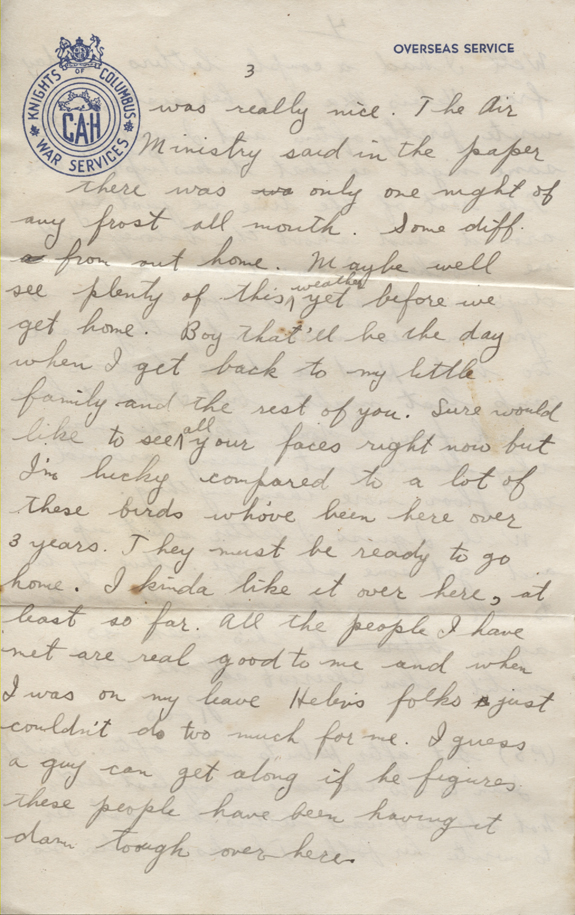 OVERSEAS SERVICE
3
KNIGHTS OF COLUMBUS
CAH
WAR SERVICES
was really nice. The Air
Ministry said in the paper
there was only one night of
any frost all month. Some diff.
from out home. Maybe well
see plenty of this weather yet before we
get home. Boy that'll be the day
when I get back to my little
family and the rest of you. Sure would
like to see all your faces right now but
I'm lucky compared to a lot of
these birds who've been here over
3 years. They must be ready to go
home. I kinda like it over here, at
least so far. All the people I have
met are real good to me and when
I was on my leave Helen's folks just
couldn't do too much for me. I guess
a guy can get along if he figures
these people have been having it
darn tough over here.